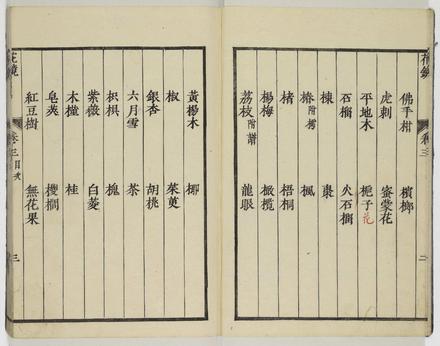 花鏡 卷三 二
佛手柑 檳榔
虎刺 蜜蒙花
平地木 梔子花
石榴 火石榴
楝 棗
椿附樗 楓
楮 梧桐
楊梅 橄欖
荔枝附譜 龍眼
黃楊木 椰
椒 茱萸
銀杏 胡桃
六月雪 茶
枳椇 槐
紫薇 白菱
木槿 桂
皂莢 椶櫚
紅豆樹 無花果
花鏡 卷三目次 三